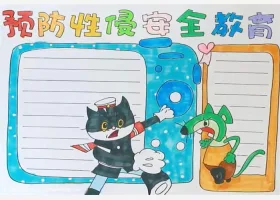 预防性侵安全教育